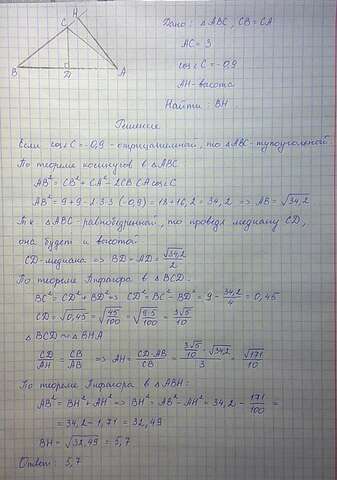 H
C
B
D
A
Дано: △ABC, CB=CA
AC=3
cos∠C=-0,9
AH-высота
Найти: BH.
Решение
Если cos∠C=-0,9-отрицательный, то △ABC-тупоугольный
По теореме косинусов в △ABC
AB²=CB²+CA²-2CB·CA·cosC
AB²=9+9-2·3·3·(-0,9)=18+16,2=34,2 => AB=√34,2.
Т.к △ABC-равнобедренный, то проведя медиану CD,
она будет и высотой
CD-медиана => BD=AD=√34,2/2
По теореме Пифагора в △BCD.
BC²=CD²+BD² => CD²=BC²-BD²=9-34,2/4=0,45
CD=√0,45=√(45/100)=√(9·5/100)=3√5/10
△BCD∾△BHA
CD/AH=CB/AB => AH=CD·AB/CB=(3√5/10·√34,2)/3=√171/10
По теореме Пифагора в △ABH:
AB²=BH²+AH² => BH²=AB²-AH²=34,2-171/100=
=34,2-1,71=32,49
BH=√32,49=5,7
Ответ: 5,7